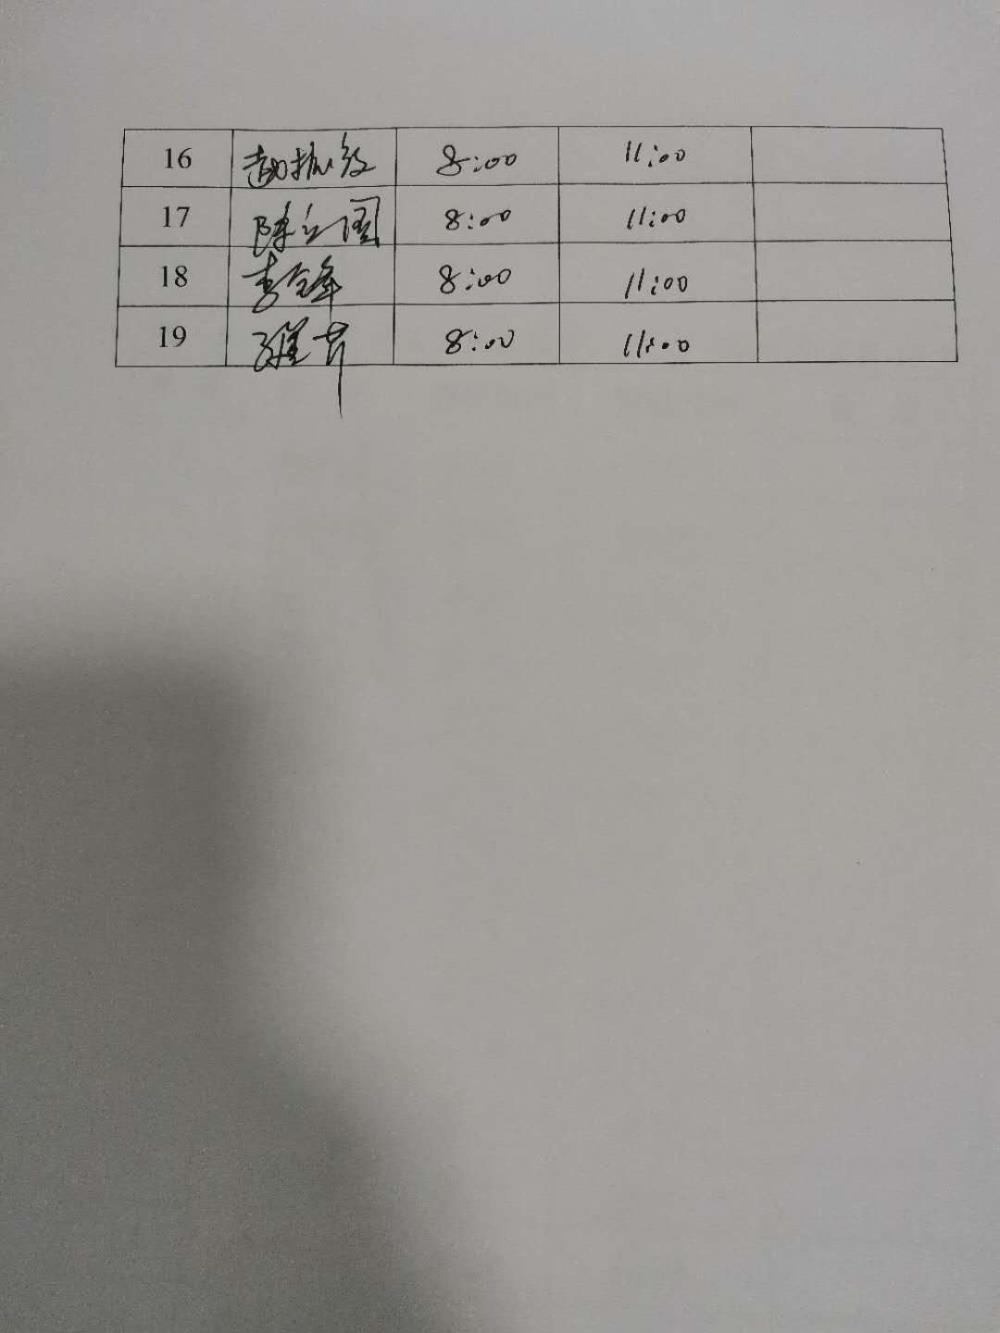 16 赵振 8:00 11:00
17 陈立国 8:00 11:00
18 李金峰 8:00 11:00
19 8:00 11:00